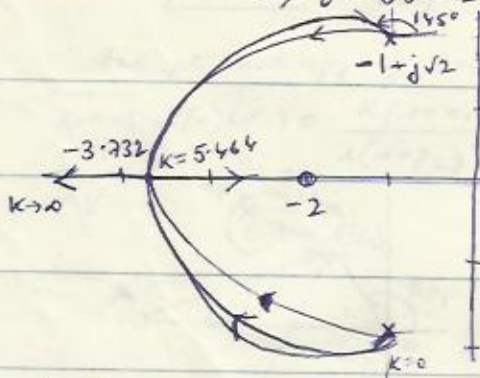 145°
-1+j√2
-3.732
K=5.464
K→∞
-2
K=0